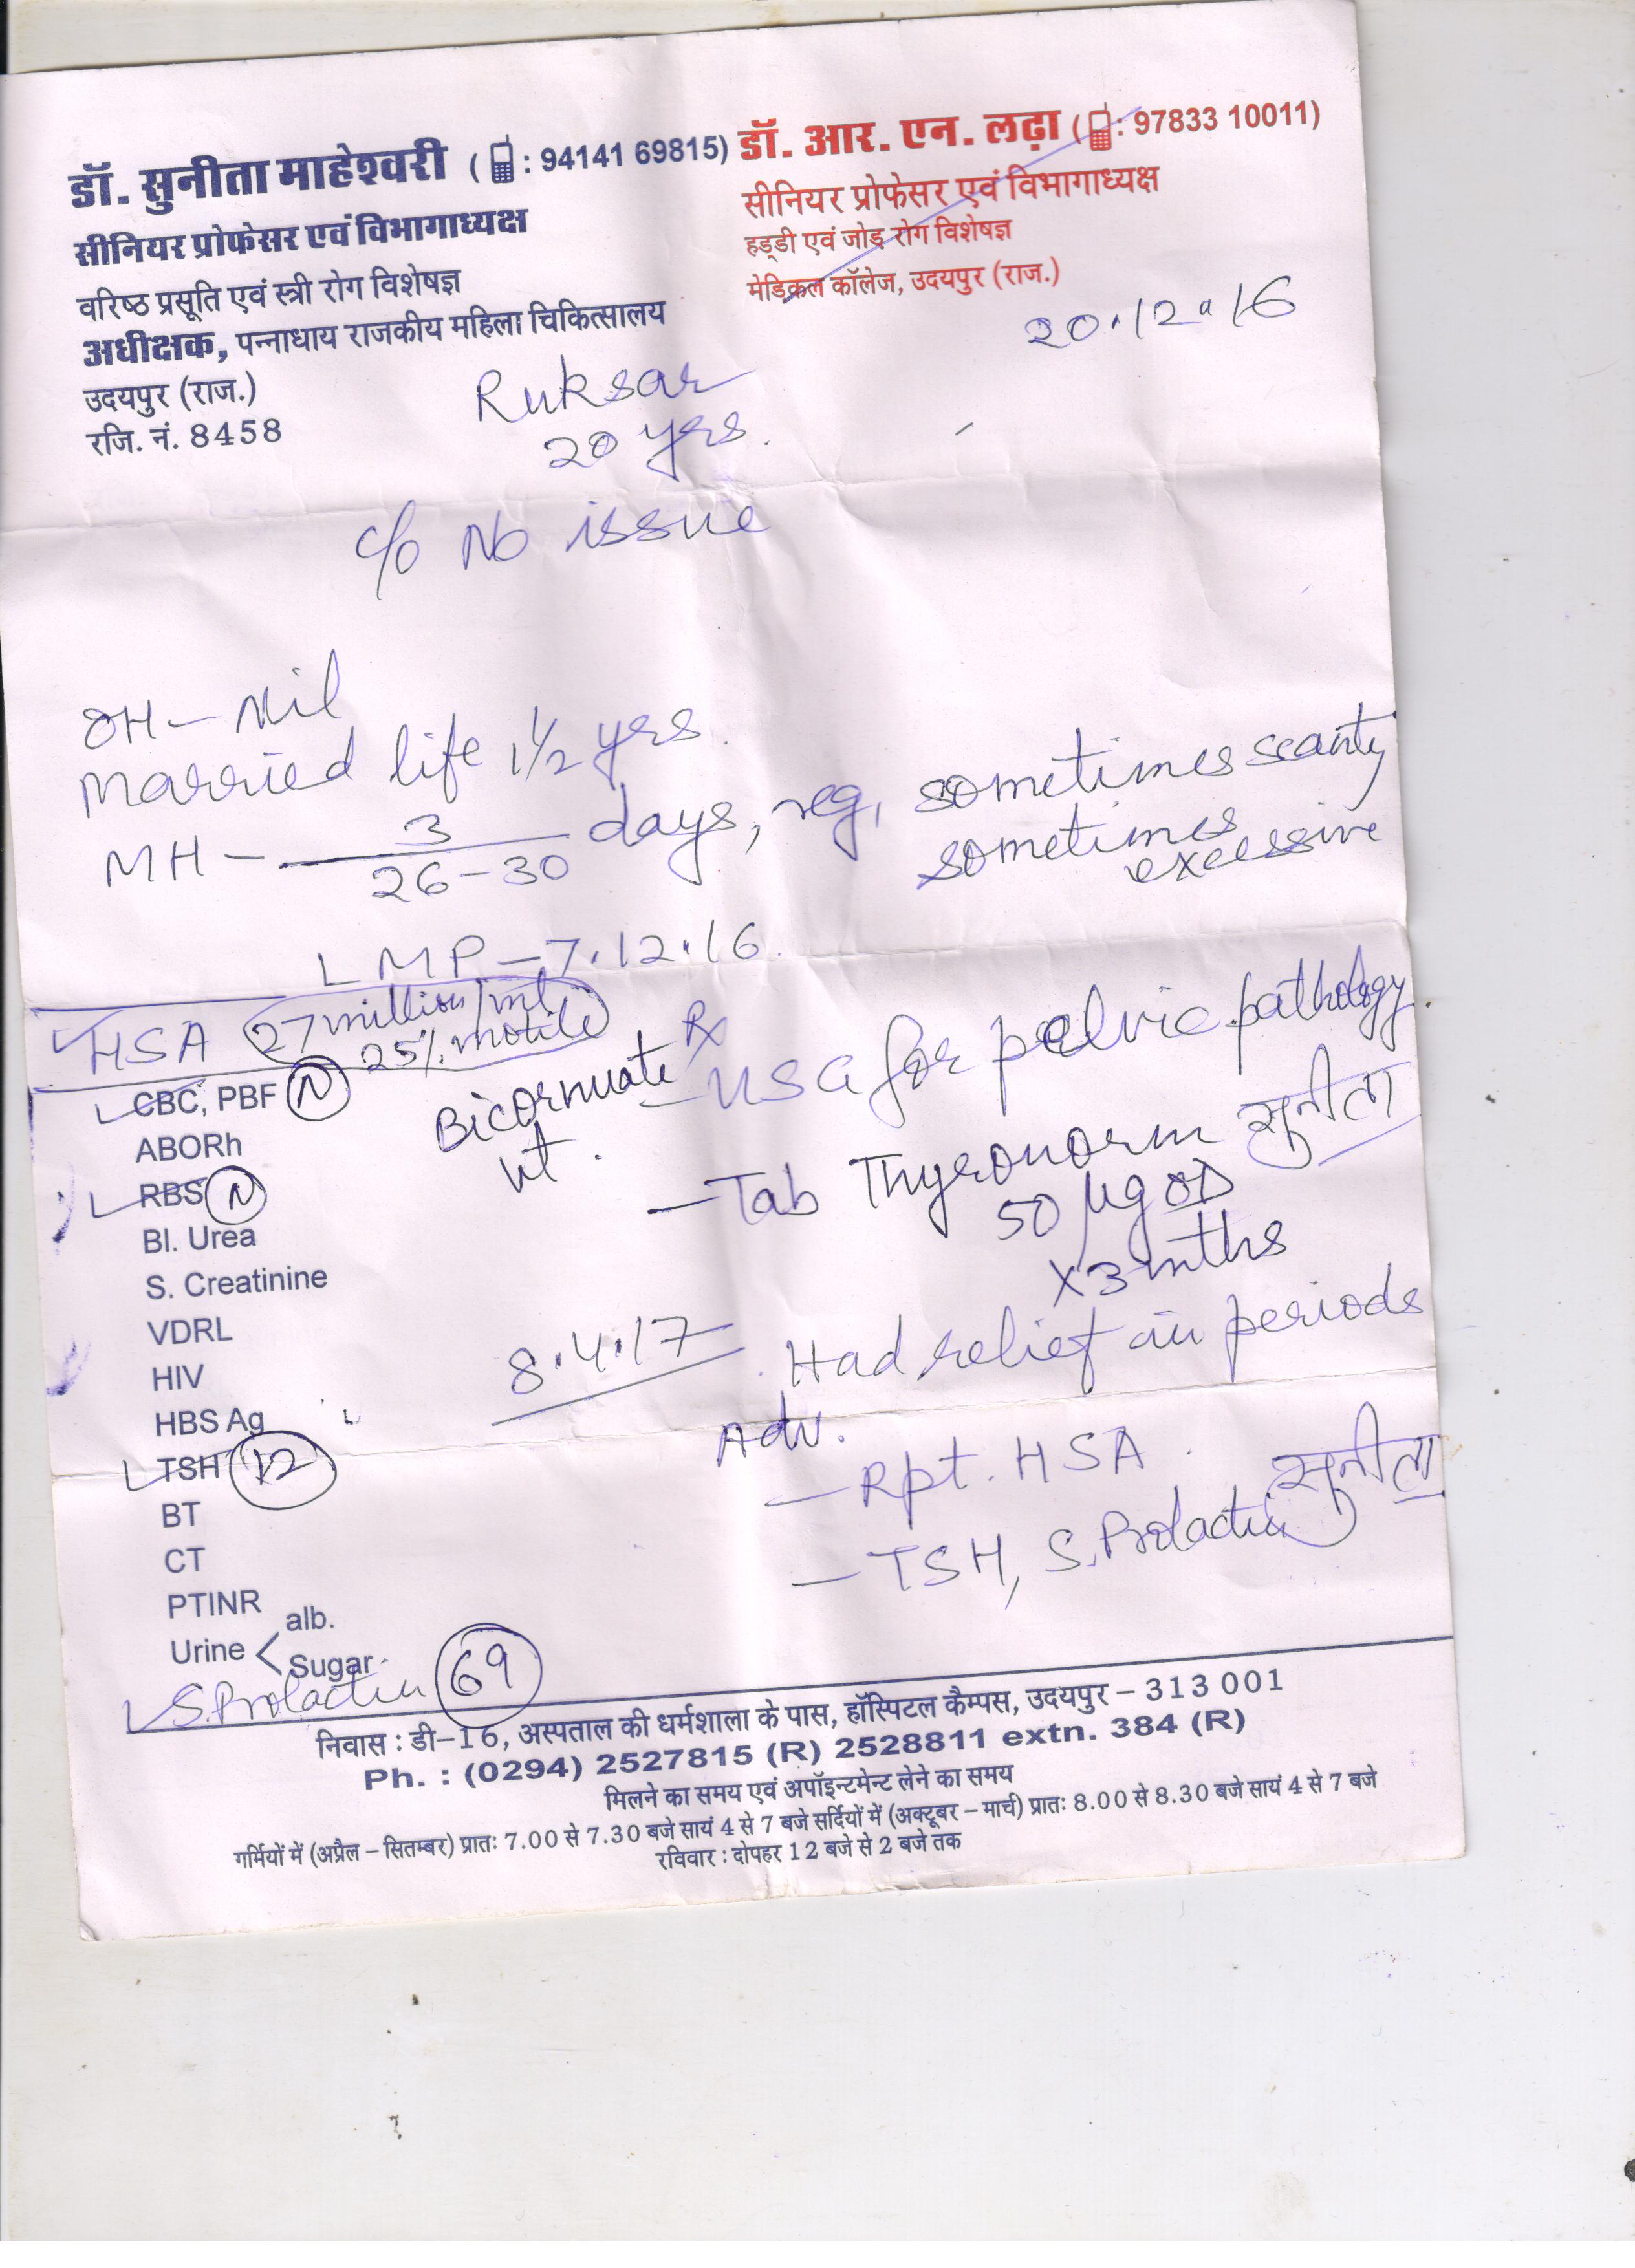 डॉ. सुनीता माहेश्वरी ( : 94141 69815)
सीनियर प्रोफेसर एवं विभागाध्यक्ष
वरिष्ठ प्रसूति एवं स्त्री रोग विशेषज्ञ
अधीक्षक, पन्नाधाय राजकीय महिला चिकित्सालय
उदयपुर (राज.)
रजि. नं. 8458
डॉ. आर. एन. लढ़ा ( : 97833 10011)
सीनियर प्रोफेसर एवं विभागाध्यक्ष
हड्डी एवं जोड़ रोग विशेषज्ञ
मेडिकल कॉलेज, उदयपुर (राज.)
20.12.16
Ruksar
20 yrs.
c/o No issue
OH - Nil
Married life 1½ yrs.
MH - 3/26-30 days, reg, sometimes scanty
sometimes
excessive
LMP - 7.12.16.
HSA 27 million/ml
25% motile
CBC, PBF N
ABORh
RBS N
Bl. Urea
S. Creatinine
VDRL
HIV
HBS Ag
TSH 12
BT
CT
PTINR
Urine < alb.
Sugar
S. Prolactin 69
Bicornuate
ut.
Rx
- USG for pelvic pathology.
सुनीता
- Tab Thyronorm
50 µg OD
x 3 mths
8.4.17
Had relief in periods
Adv.
- Rpt. HSA.
सुनीता
- TSH, S. Prolactin
निवास : डी-16, अस्पताल की धर्मशाला के पास, हॉस्पिटल कैम्पस, उदयपुर - 313 001
Ph. : (0294) 2527815 (R) 2528811 extn. 384 (R)
मिलने का समय एवं अपॉइन्टमेन्ट लेने का समय
गर्मियों में (अप्रैल - सितम्बर) प्रातः 7.00 से 7.30 बजे सायं 4 से 7 बजे सर्दियों में (अक्टूबर - मार्च) प्रातः 8.00 से 8.30 बजे सायं 4 से 7 बजे
रविवार : दोपहर 12 बजे से 2 बजे तक